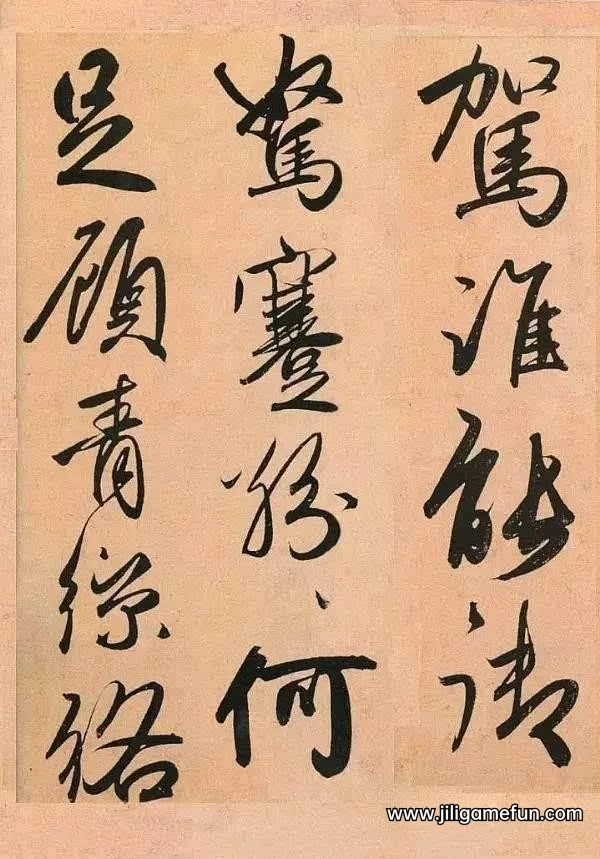 駕誰能御
駑蹇紛〻何
足顧青絡
www.jiligamefun.com